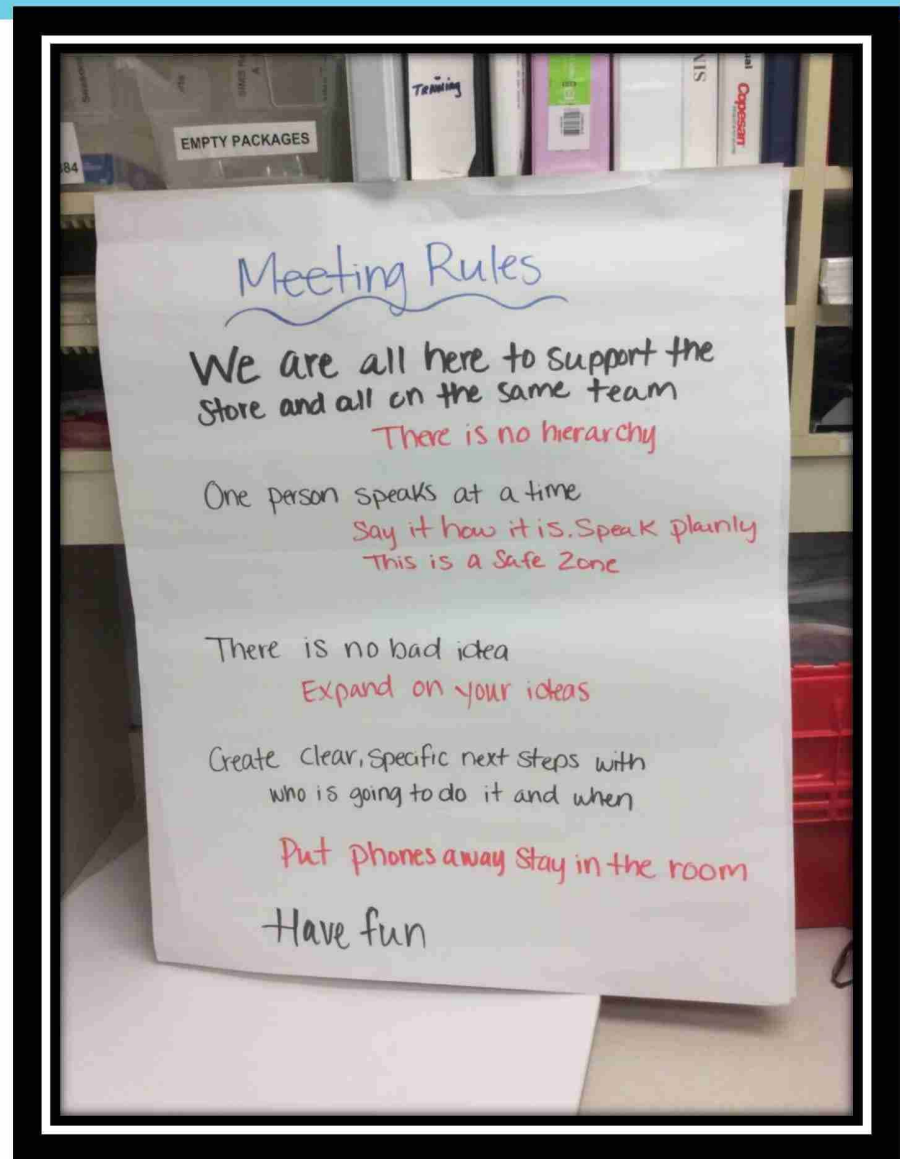 Training
EMPTY PACKAGES
84
Copesan
Meeting Rules
We are all here to support the
store and all on the same team
There is no hierarchy
One person speaks at a time
Say it how it is. Speak plainly
This is a Safe Zone
There is no bad idea
Expand on your ideas
Create clear, specific next steps with
who is going to do it and when
Put phones away stay in the room
Have fun